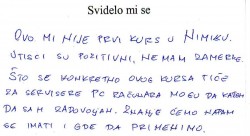 Svidelo mi se
OVO MI NIJE PRVI KURS U NIMIKU.
UTISCI SU POZITIVNI, NEMAM ZAMERKE.
ŠTO SE KONKRETNO OVOG KURSA TIČE
ZA SERVISERE PC RAČUNARA MOGU DA KAŽEM
DA SAM ZADOVOLJAN. ZNANJE ĆEMO NADAM
SE IMATI I GDE DA PRIMENIMO.